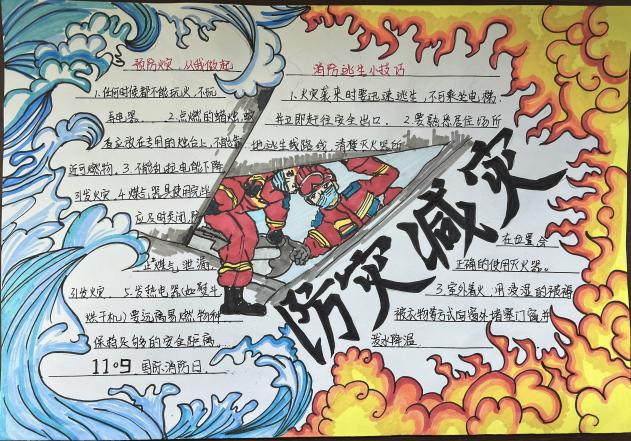 预防火灾 从我做起
1.任何时候都不能玩火、不玩
弄电器. 2.点燃的蜡烛、蚊
香应放在专用的烛台上,不能靠
近可燃物. 3.不能乱拉电线
引发火灾. 4.煤气器具使用
应及时关闭,
止煤气泄漏,
引发火灾. 5.发热电器(如熨斗
烘干机)要远离易燃物种
保持足够的安全距离.
11·9 国际消防日.
消防逃生小技巧
1.火灾袭来时要迅速逃生,不可乘坐电梯,
并立即赶往安全出口. 2.要熟悉居住场所
地逃生线路线,清楚灭火器所
在位置,会
正确的使用灭火器。
3.室外着火,用浸湿的被褥
被衣物等方式向窗外堵塞门窗并
泼水降温.
防灾减灾